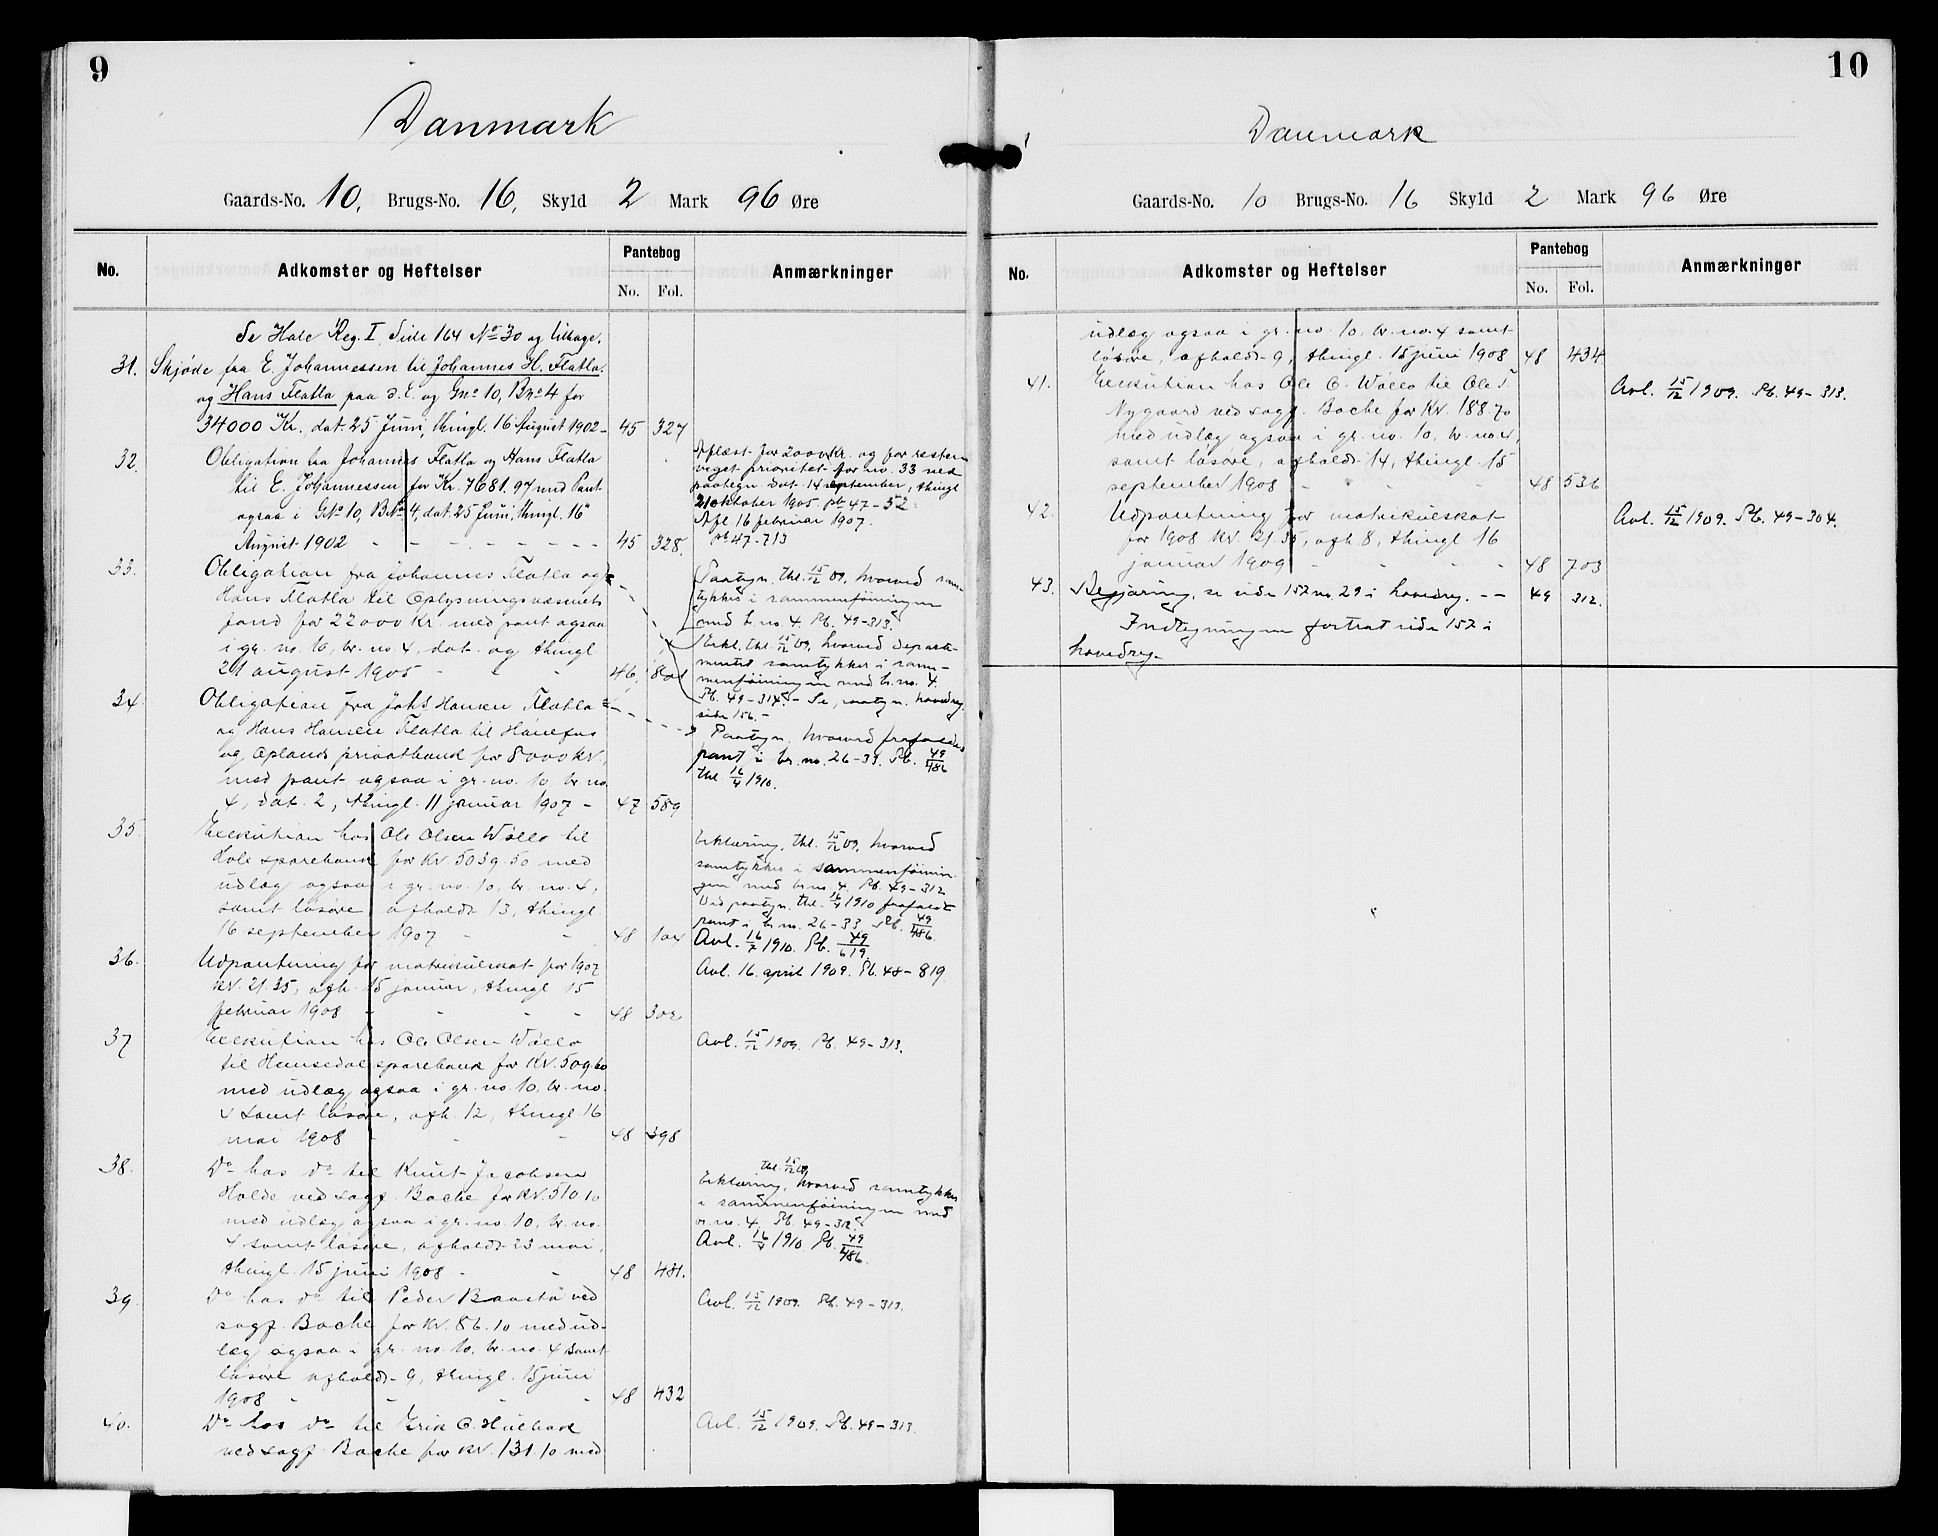 9
Danmark
Gaards-No. 10, Brugs-No. 16, Skyld 2 Mark 96 Øre
No. Adkomster og Heftelser Pantebog No. Fol. Anmærkninger
Se Hole Reg. I Side 164 No 30 og tilbage.
31. Skjøde fra E. Johannessen til Johannes H. Flatla
og Hans Flatla paa d. E. og Gno 10, Bno 4 for
34000 Kr. dat. 25 Juni, thingl. 16 August 1902 - 45 327
32. Obligation fra Johannes Flatla og Hans Flatla
til E. Johannessen for Kr. 7681.97 med Pant
ogsaa i GNo 10, BNo 4, dat. 25 Juni, thingl. 16
August 1902 - - - - - - 45 328.
Aflæst for 2000 Kr. og for resten
veget prioritet for no. 33 ved
paategn. dat. 14 september, thingl
21 oktober 1905 pb 47-52
Afl 16 februar 1907.
pb 47-713
33. Obligation fra Johannes Flatla og
Hans Flatla til Oplysningsvæsnets
fond for 22000 Kr. med pant ogsaa
i gr. no. 10, br. no. 4, dat. og thingl
21 august 1905 - - - 46, 801
Paategn. thl. 15/12 09, hvorved sam-
tykkes i sammenføiningen
med b. no. 4. Pb. 49-313.
Erkl. thl. 15/12 09, hvorved departe-
mentet samtykker i sam-
menføiningen med br. no. 4.
Pb. 49-314. - Se, paategn. hovedreg.
side 156. -
34. Obligation fra Johs Hansen Flatla
og Hans Hansen Flatla til Hønefos
og Oplands privatbank for 8000 kr.
med pant ogsaa i gr. no. 10 br no
4, dat. 2, thingl. 11 januar 1907 - 47 589
Paategn. hvorved frafaldes
pant i br. no. 26-33. Pb. 49/486
thl 16/4 1910.
35. Exekution hos Ole Olsen Wøllo til
Hole sparebank for Kr. 5039.50 med
udlæg ogsaa i gr. no. 10, br. no. 4,
samt løsøre, afholdt 13, thingl.
16 september 1907 - - 48 104
Erklæring, thl. 15/12 09, hvorved
samtykkes i sammenføinin-
gen med br no. 4. Pb. 49-312
Ved paategn. thl. 16/4 1910 frafaldt
pant i b. no. 26-33 Pb. 49/486.
Avl. 16/7 1910. Pb. 49/619.
36. Udpantning for matrikulskat for 1907
kr. 21.35, afh. 15 januar, thingl 15
februar 1908 - - - - 48 302
Avl. 16. april 1909. Pb. 48-819
37 Exekution hos Ole Olsen Wøllo
til Hemsedal sparebank for Kr. 509.60
med udlæg ogsaa i gr. no 10, br. no.
4 samt løsøre, afh. 12, thingl. 16
mai 1908 - - - 48 398
Avl. 15/12 1909. Pb. 49-313.
38. Do hos do til Knut Jacobsen
Holde ved sagf. Bache for Kr. 510 10
med udlæg ogsaa i gr. no. 10, br. no.
4 samt løsøre, afholdt 23 mai,
thingl. 15 juni 1908 - - 48 431.
thl. 15/12 09,
Erklæring, hvorved samtykkes
i sammenføiningen med
br. no. 4. Pb. 49-312.
Avl. 16/4 1910. Pb. 49/486.
39. Do hos do til Peder ved
sagf. Bache for Kr. 86.10 med ud-
læg ogsaa i gr. no. 10, br. no. 4 samt
løsøre afholdt 9, thingl. 15 juni
1908 - - - - 48 432
Avl. 15/12 1909. Pb. 49-313.
40. Do hos do til Erik O.
ved sagf. Bache for kr. 131.10 med
Avl. 15/12 1909. Pb. 49-313.
10
Danmark
Gaards-No. 10 Brugs-No. 16 Skyld 2 Mark 96 Øre
No. Adkomster og Heftelser Pantebog No. Fol. Anmærkninger
udlæg ogsaa i gr. no. 10, br. no. 4 samt
løsøre, afholdt 9, thingl. 15 juni 1908 48 434
41. Exekution hos Ole O. Wøllo til Ole T.
Nygaard ved sagf. Bache for Kr. 188.70
med udlæg ogsaa i gr. no. 10, br. no. 4,
samt løsøre, afholdt 14, thingl. 15
september 1908 - - - - 48 536
Avl. 15/12 1909. Pb. 49-313.
42. Udpantning for matrikulskat
for 1908 Kr. 21.35, afh. 8, thingl 16
januar 1909 - - - - 48 703
Avl. 15/12 1909. Pb. 49-304.
43. Begjæring, se side 157 no. 29 i hovedreg. - - 49 312.
Indtegningen fortsat side 157 i
hovedreg.